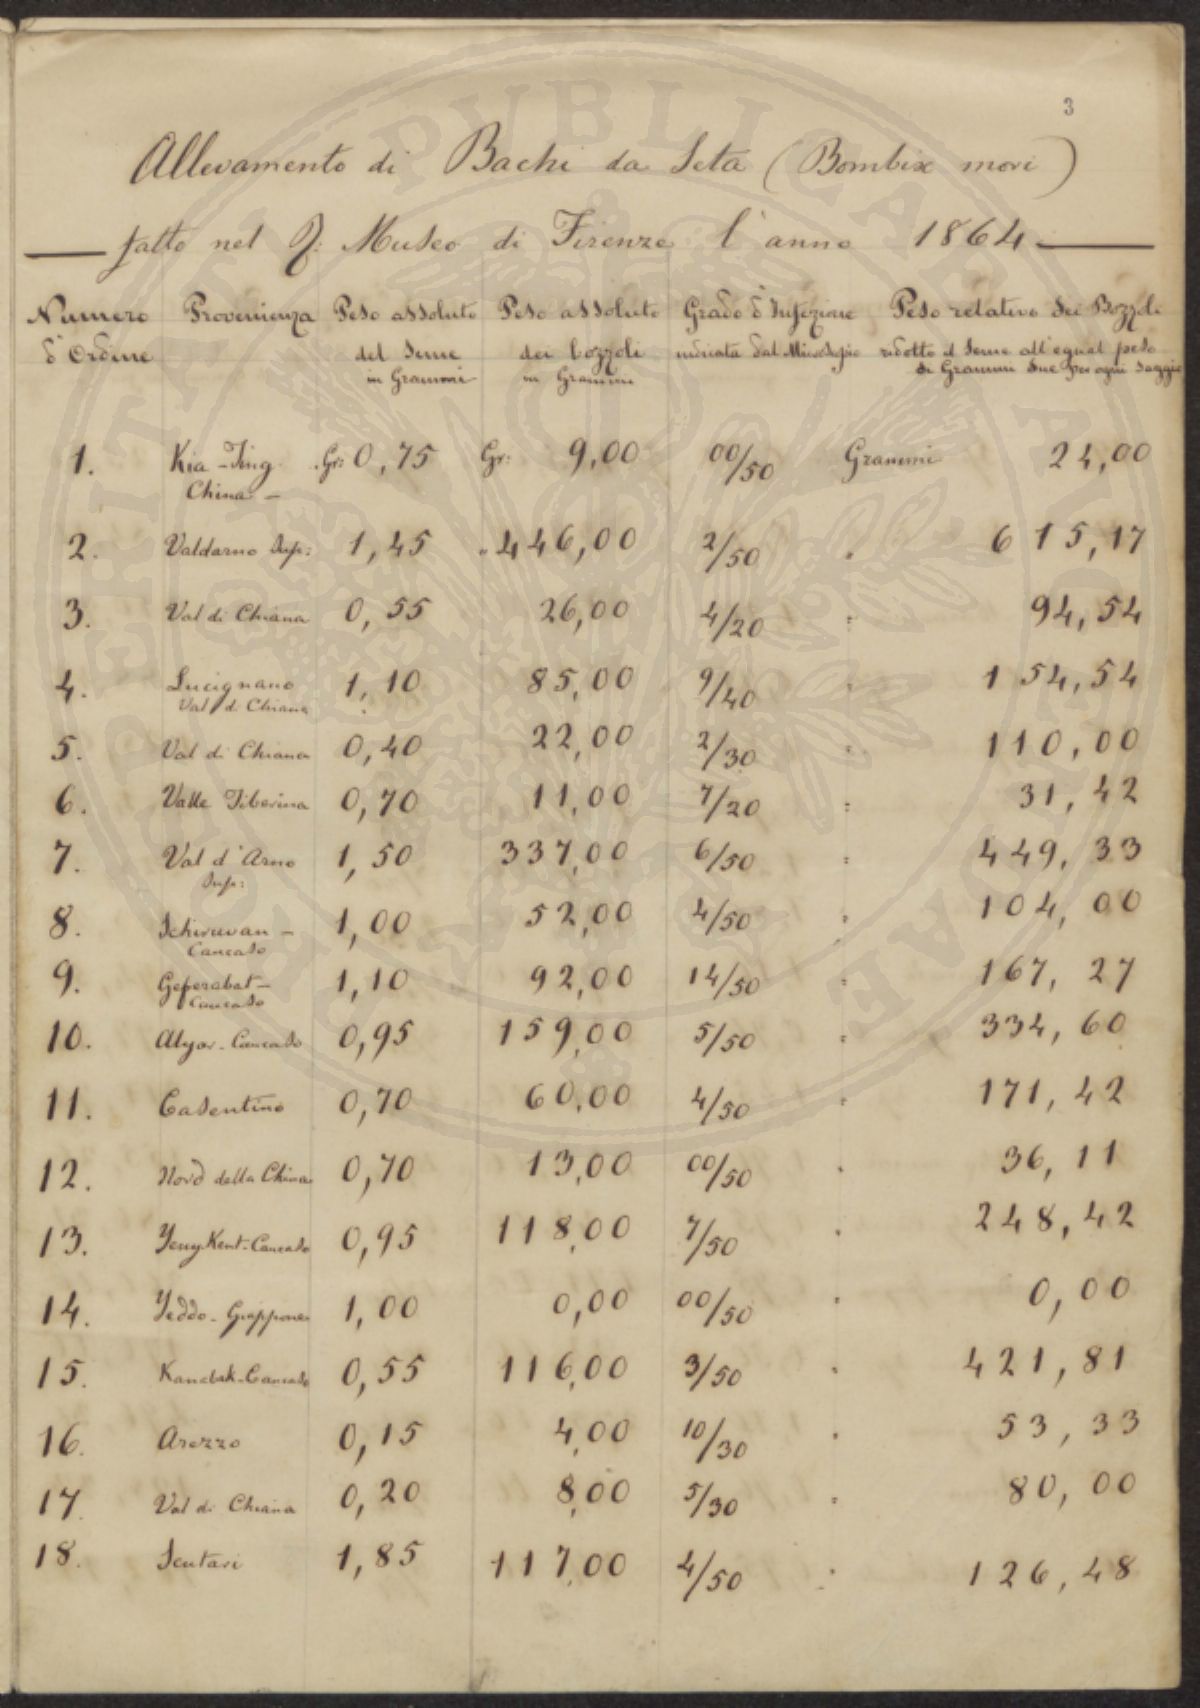 3
Allevamento di Bachi da Seta (Bombix mori)
fatto nel R. Museo di Firenze l'anno 1864
Numero d'Ordine Provenienza Peso assoluto del Seme in Grammi Peso assoluto dei bozzoli in Grammi Grado d'Infezione indicata dal Microscopio Peso relativo dei Bozzoli ridotto il Seme all'egual peso di Grammi due per ogni Saggio
1. Kia-Ting China - Gr: 0,75 Gr: 9,00 00/50 Grammi 24,00
2. Valdarno Sup: 1,45 " 446,00 2/50 " 615,17
3. Val di Chiana 0,55 26,00 4/20 " 94,54
4. Lucignano Val di Chiana 1,10 85,00 9/40 " 154,54
5. Val di Chiana 0,40 22,00 2/30 " 110,00
6. Valle Tiberina 0,70 11,00 7/20 " 31,42
7. Val d'Arno Sup: 1,50 337,00 6/50 " 449,33
8. Schiruvan - Caucaso 1,00 52,00 4/50 " 104,00
9. Geferabat - Caucaso 1,10 92,00 14/50 " 167,27
10. - Caucaso 0,95 159,00 5/50 " 334,60
11. Casentino 0,70 60,00 4/50 " 171,42
12. Nord della China 0,70 13,00 00/50 " 36,11
13. Yeny Kent - Caucaso 0,95 118,00 7/50 " 248,42
14. Yeddo - Giappone 1,00 0,00 00/50 " 0,00
15. - Caucaso 0,55 116,00 3/50 " 421,81
16. Arezzo 0,15 4,00 10/30 " 53,33
17. Val di Chiana 0,20 8,00 5/30 " 80,00
18. Scutari 1,85 117,00 4/50 " 126,48